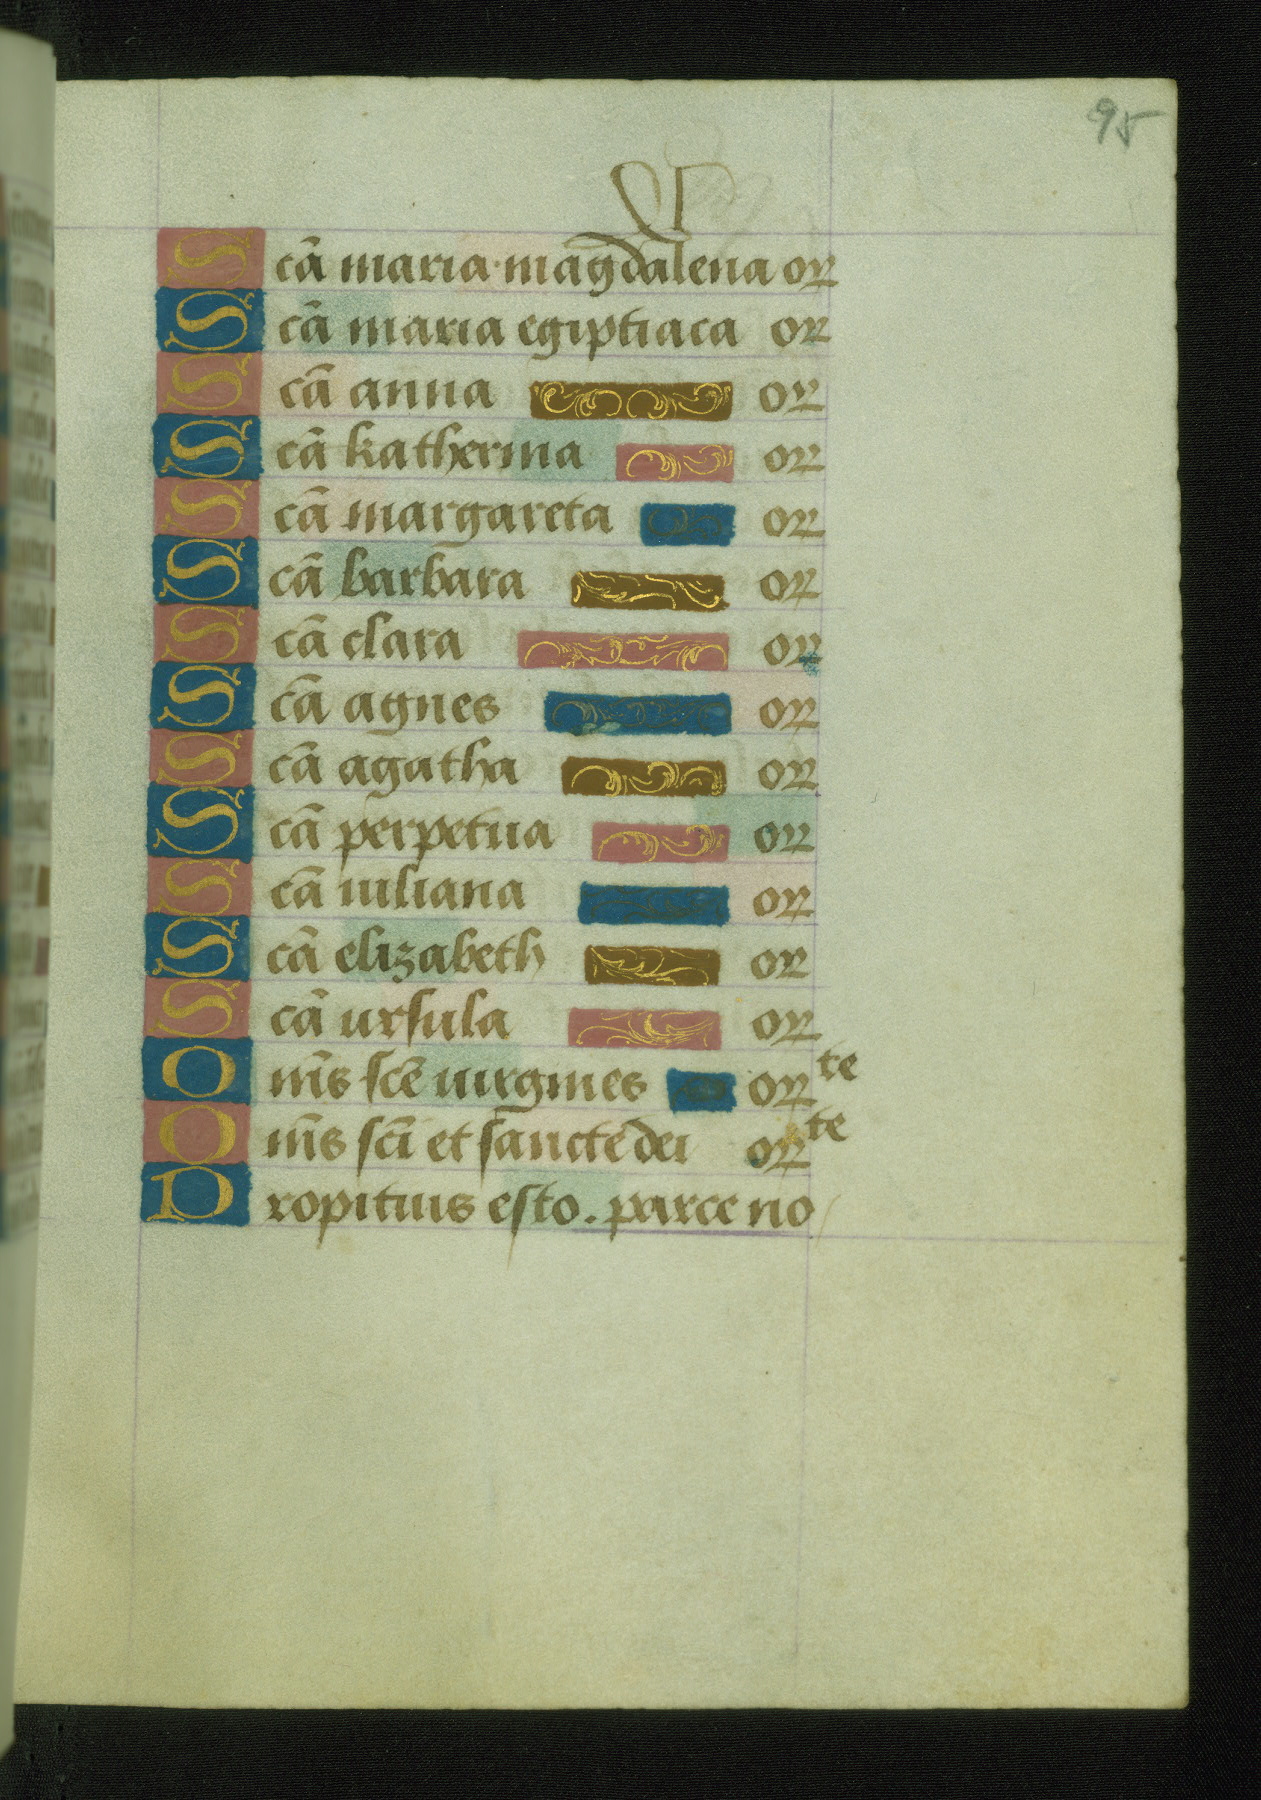 95
Scā maria magdalena or
Scā maria egiptiaca or
Scā anna or
Scā katherina or
Scā margareta or
Scā barbara or
Scā clara or
Scā agnes or
Scā agatha or
Scā perpetua or
Scā iuliana or
Scā elizabeth or
Scā ursula or
Om̄s scē uirgines orte
Om̄s scī et sancte dei orte
Propitius esto. parce no